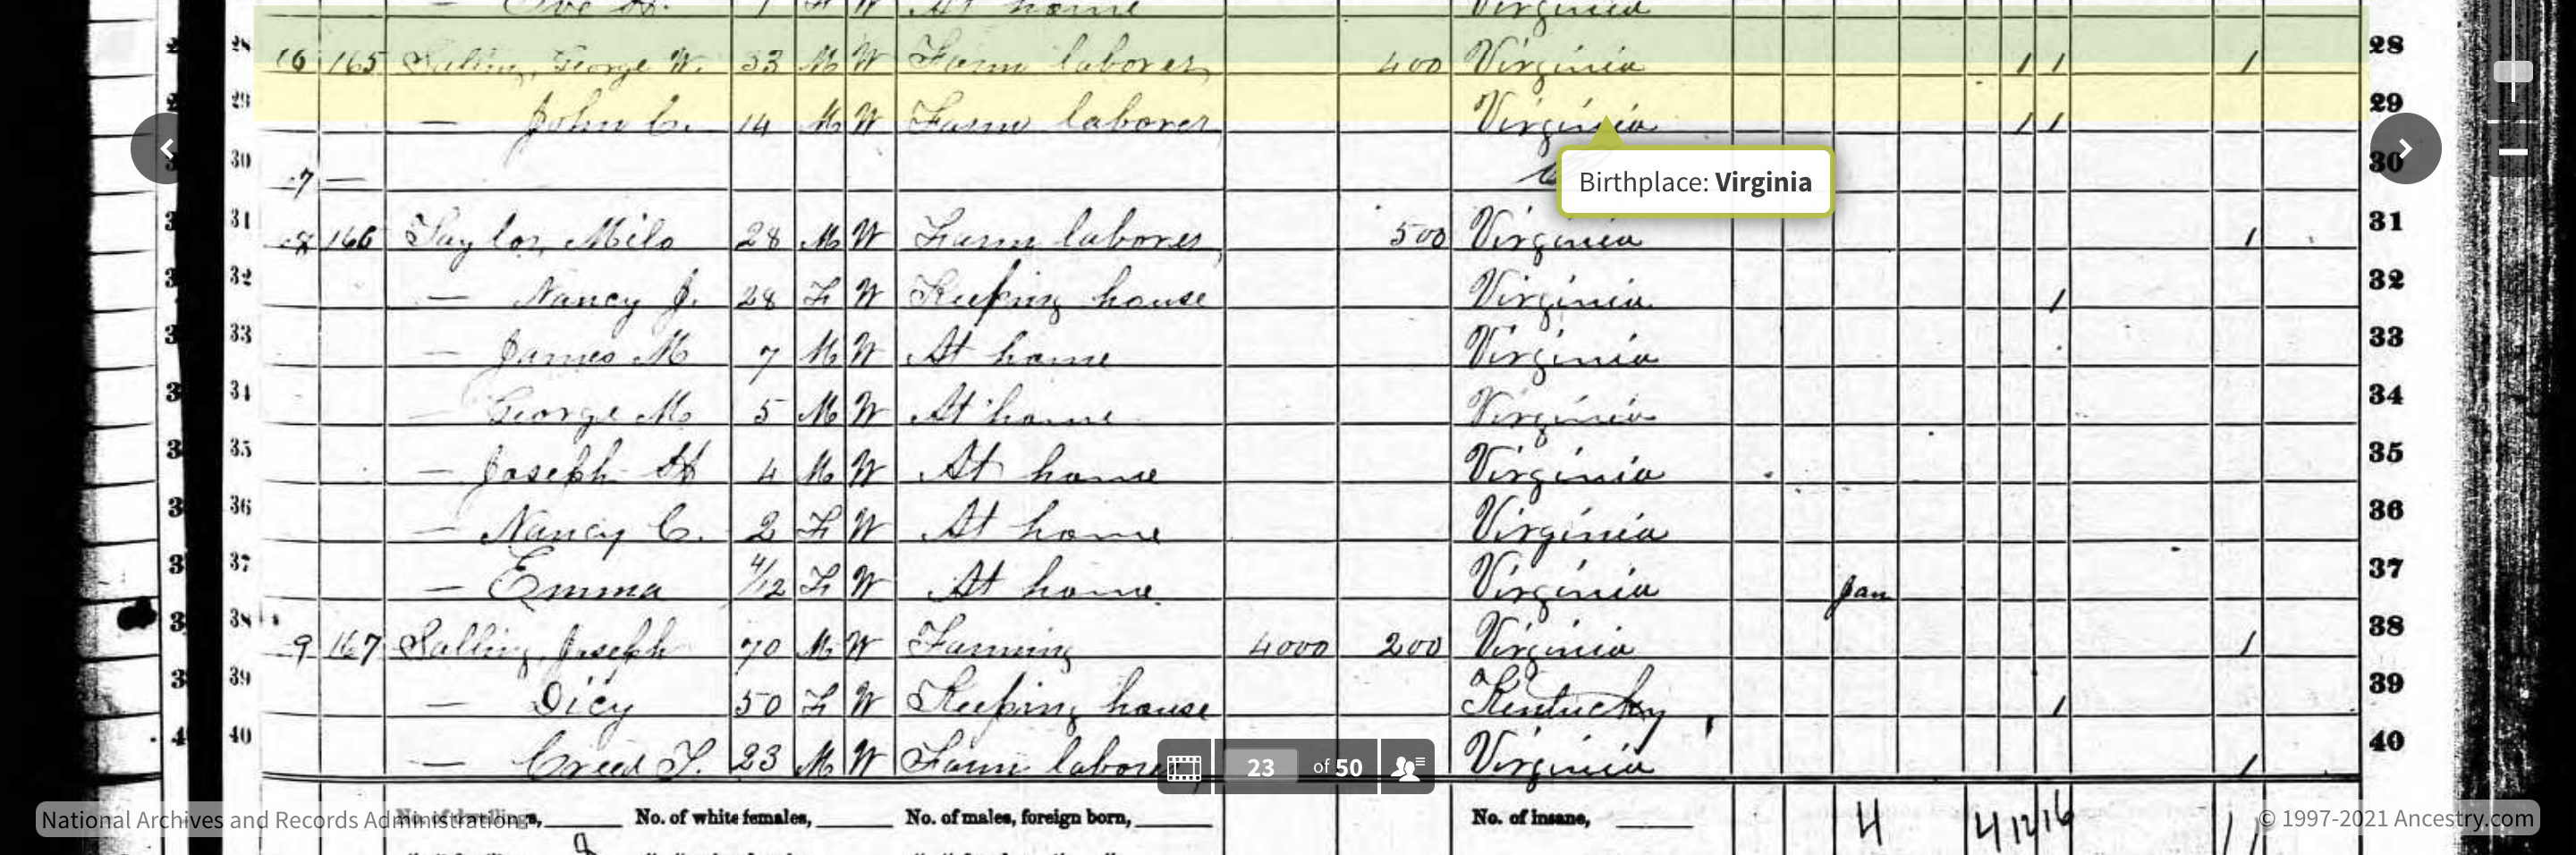 At home Virginia
28 16 165 Salling, George W. 33 M W Farm laborer 400 Virginia 1 1 1 28
29 — John C. 14 M W Farm laborer Virginia 1 1 29
30 7 — 30
Birthplace: Virginia
31 166 Taylor, Milo 28 M W Farm laborer 500 Virginia 1 31
32 — Nancy J. 28 F W Keeping house Virginia 1 32
33 — James M 7 M W At home Virginia 33
34 — George M 5 M W At home Virginia 34
35 — Joseph H 4 M W At home Virginia 35
36 — Nancy C. 2 F W At home Virginia 36
37 — Emma 4/12 F W At home Virginia Jan 37
38 9 167 Salling, Joseph 70 M W Farming 4000 200 Virginia 1 38
39 — Dicy 50 F W Keeping house Kentucky 1 39
40 — Creed T. 23 M W Farm laborer Virginia 1 40
23 of 50
No. of dwellings, No. of white females, No. of males, foreign born, No. of insane, 4 4 12 16 11
National Archives and Records Administration
© 1997-2021 Ancestry.com